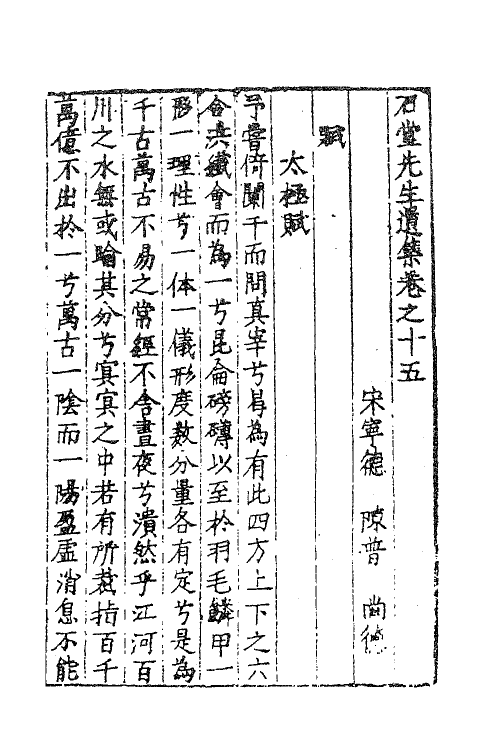 石堂先生遺集卷之十五
宋寧德　陳普　尚德
賦
太極賦
予嘗倚闌干而問真宰兮曷為有此四方上下之六
合洪纖會而為一兮昆侖磅礴以至於羽毛鱗甲一
形一理性兮一体一儀形度數分量各有定兮是為
千古萬古不易之常經不舍晝夜兮瀆然乎江河百
川之水無或踰其分兮寘寘之中若有所裁指百千
萬億不出於一兮萬古一陰而一陽盈虛消息不能